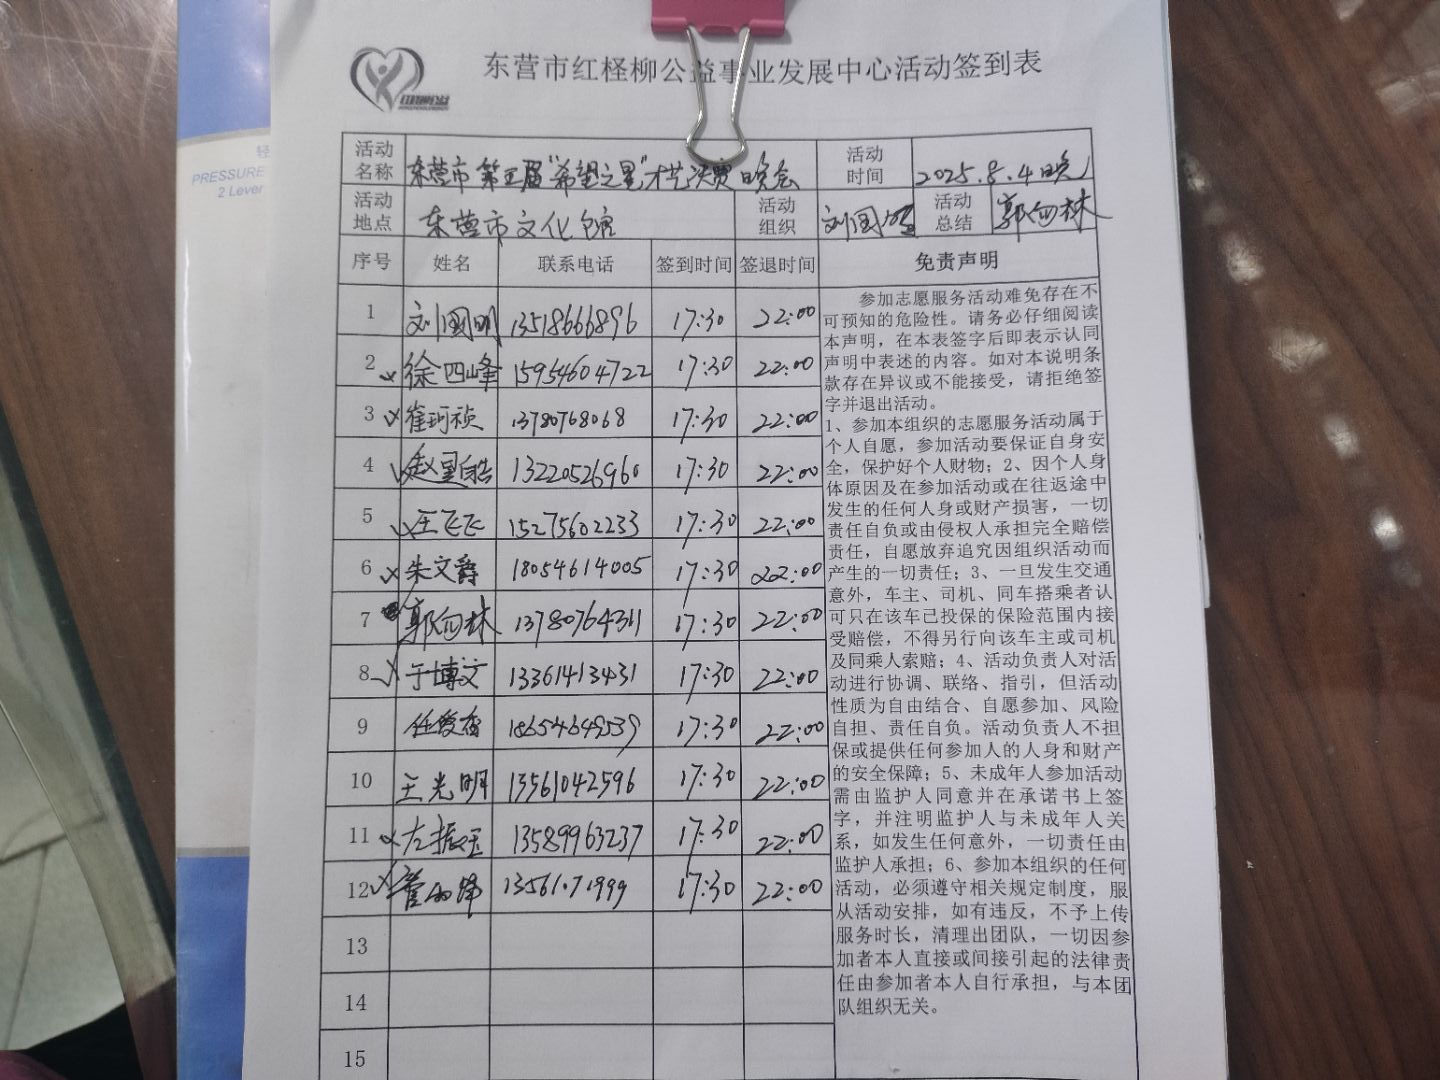 东营市红柽柳公益事业发展中心活动签到表
红柽柳公益
轻
PRESSURE
2 Lever
活动名称 东营市第五届“希望之星”才艺决赛晚会 活动时间 2025.8.4晚
活动地点 东营市文化馆 活动组织 刘国明 活动总结 郭向林
序号 姓名 联系电话 签到时间 签退时间 免责声明
1 刘国明 13518666896 17:30 22:00
2 徐四峰 15954604722 17:30 22:00
3 崔珂祯 13780768068 17:30 22:00
4 赵星皓 13220526960 17:30 22:00
5 王飞飞 15275602233 17:30 22:00
6 朱文爵 18054614005 17:30 22:00
7 郭向林 13780764311 17:30 22:00
8 于博文 13361413431 17:30 22:00
9 任爱香 18654649539 17:30 22:00
10 王光明 13561042596 17:30 22:00
11 左振玉 13589963237 17:30 22:00
12 13561071999 17:30 22:00
13
14
15
参加志愿服务活动难免存在不
可预知的危险性。请务必仔细阅读
本声明，在本表签字后即表示认同
声明中表述的内容。如对本说明条
款存在异议或不能接受，请拒绝签
字并退出活动。
1、参加本组织的志愿服务活动属于
个人自愿，参加活动要保证自身安
全，保护好个人财物；2、因个人身
体原因及在参加活动或在往返途中
发生的任何人身或财产损害，一切
责任自负或由侵权人承担完全赔偿
责任，自愿放弃追究因组织活动而
产生的一切责任；3、一旦发生交通
意外，车主、司机、同车搭乘者认
可只在该车已投保的保险范围内接
受赔偿，不得另行向该车主或司机
及同乘人索赔；4、活动负责人对活
动进行协调、联络、指引，但活动
性质为自由结合、自愿参加、风险
自担、责任自负。活动负责人不担
保或提供任何参加人的人身和财产
的安全保障；5、未成年人参加活动
需由监护人同意并在承诺书上签
字，并注明监护人与未成年人关
系，如发生任何意外，一切责任由
监护人承担；6、参加本组织的任何
活动，必须遵守相关规定制度，服
从活动安排，如有违反，不予上传
服务时长，清理出团队，一切因参
加者本人直接或间接引起的法律责
任由参加者本人自行承担，与本团
队组织无关。